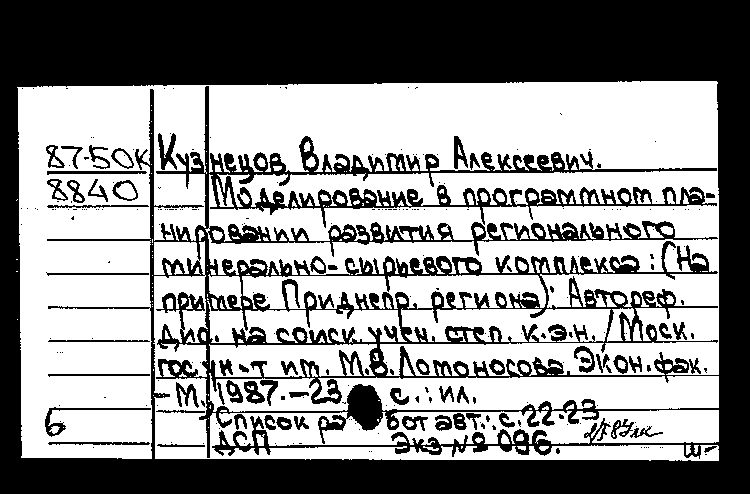 87-50К Кузнецов, Владимир Алексеевич.
8840 Моделирование в программном пла-
нировании развития регионального
минерально-сырьевого комплекса: (На
примере Приднепр. региона): Автореф.
дис. на соиск. учен. степ. к.э.н. / Моск.
гос. ун-т им. М.В. Ломоносова. Экон. фак.
- М., 1987. - 23 с.: ил.
6 Список ра бот авт.: с. 22-23
ДСП Экз № 096.
ш-